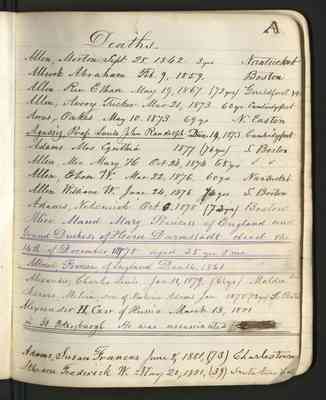 A
Deaths.
Allen, Morton Sept 25. 1842. 3 yrs Nantucket
Allcock Abraham Feb. 9, 1859. Boston
Allen Rev Ethan May 19, 1867. (72 yrs) Guildford, Vt.
Allen, Harry Tucker Mar 21, 1873 60 yrs Cambridgeport
Ames, Oakes May 10, 1873 69 yrs N. Easton
Agassiz, Prof. Louis John Randolph Dec 14, 1873. Cambridgeport
Adams Mrs Cynthia 1877 (76 yrs) S. Boston
Allen Mrs Mary H Oct 23, 1874 68 yrs " "
Allen, Eben W. Mar 22, 1876. 60 yrs Nantucket
Allen William W. June 24, 1876 S. Boston
Adams, Nehemiah Oct 6, 1878 (72 yrs) Boston
Alice Maud Mary Princess of England and
Grand Duchess of Hesse Darmstadt died the
14th of December 1878 aged 35 yrs 8 mo.
Albert Prince of England Dec 14, 1861
Alexander, Charles Lewis, Jan 11, 1879. (76 yrs) Malden
Adams, Melvin, son of Jan 1879 S. Boston
Alexander II, Czar of Russia March 13, 1881
in St. Petersburg He was assassinated
Adams, Susan Frances June 2, 1881, (73) Charlestown
Frederick W. May 20, 1881, (39)